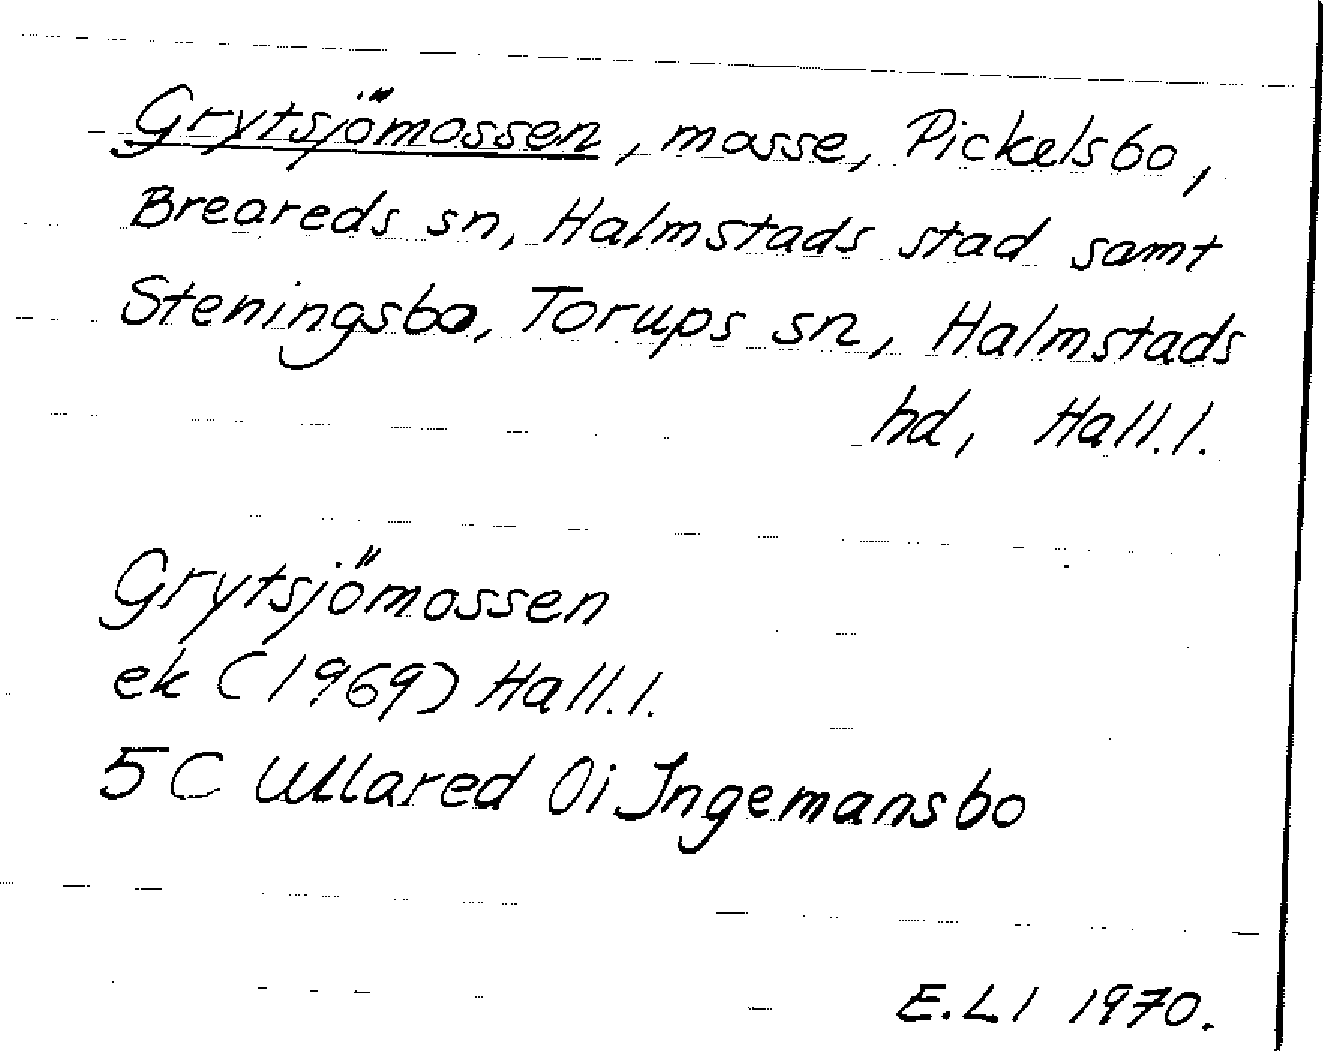 Grytsjömossen, mosse, Pickelsbo,
Breareds sn, Halmstads stad samt
Steningsbo, Torups sn, Halmstads
hd, Hall.l.
Grytsjömossen
ek (1969) Hall.l.
5C Ullared 0i Ingemansbo
E.Ll 1970.